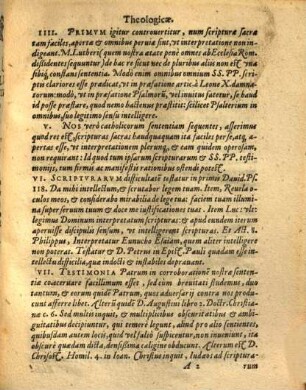 Theologicæ.
IIII. PRIMVM igitur controuertitur, num scripturæ sacræ
tam faciles, apertæ & omnibus peruiæ sint, vt interpretatione non in-
digeant. M. Lutherꝰ quem nostra ætate penè omnes ab Ecclesia Rom.
dissidentes sequuntur) de hac re nec de pluribus alijs non est vna
sibiq́; constans sententia. Modò enim omnibus omnium SS. PP. scrip-
tis clariores esse prædicat, vt in præfatione artic. à Leone X. damna-
torum: modò, vt in præfatione Psalmorũ, vel inuitus fatetur, se haud
id posse præstare, quod nemo hactenus præstitit: scilicet Psalterium in
omnibus, suo legitimo sensu intelligere.
V. Nos verò catholicorum sententiam sequentes, asserimus
quod res est, scripturas sacras haudquaquam ita faciles per se, atq́; a-
pertas esse, vt interpretationem plerunq́; & eam quidem operosam,
non requirant: Id quod tum ipsarum scripturarum & SS. PP. testi-
monijs, tum firmis ac manifestis rationibus ostendi potest.
VI. SCRIPTVRARVM difficultatẽ testatur in primo Dauid. Ps.
118. Da mihi intellectum, & scrutabor legem tuam. Item, Reuela o-
culos meos, & considerabo mirabilia de lege tua: faciem tuam illumi-
na super seruum tuum & doce me iustificationes tuas. Item Luc: vlt:
legimus Dominum interpretatum scripturas: & apud eundem iterum
aperuisse discipulis sensum, vt intelligerent scripturas. Et Act. 8.
Philippus, Interpretatur Eunucho Esaiam, quem aliter intelligere
non poterat. Testatur & D. Petrus in Epist. Pauli quædam esse in-
tellectu difficilia, quæ indocti & instabiles deprauant.
VII. TESTIMONIA Patrum in corroborationẽ nostræ senten-
tiæ coaceruare facillimum esset, sed cum breuitati studemus, duo
tantum, & eorum quidẽ Patrum, quos aduersarij contra nos prodr-
cunt afferre libet. Alter est quidẽ D. Augustinꝰ libro 2. Doctr: Christia-
næ c. 6. Sed multis inquit, & multiplicibus obscuritatibus & am-
biguitatibus decipiuntur, qui temerè legunt, aliud pro alio sentientes:
quibusdam autem locis, quid vel falsò suspicentur, non inueniunt, ita
obscurè quædam dicta, densissimam caliginẽ obducunt. Alter est D.
Chrysost. Homil. 4. in Ioan. Christus inquit, Iudæos ad scriptura-
A 2
rum